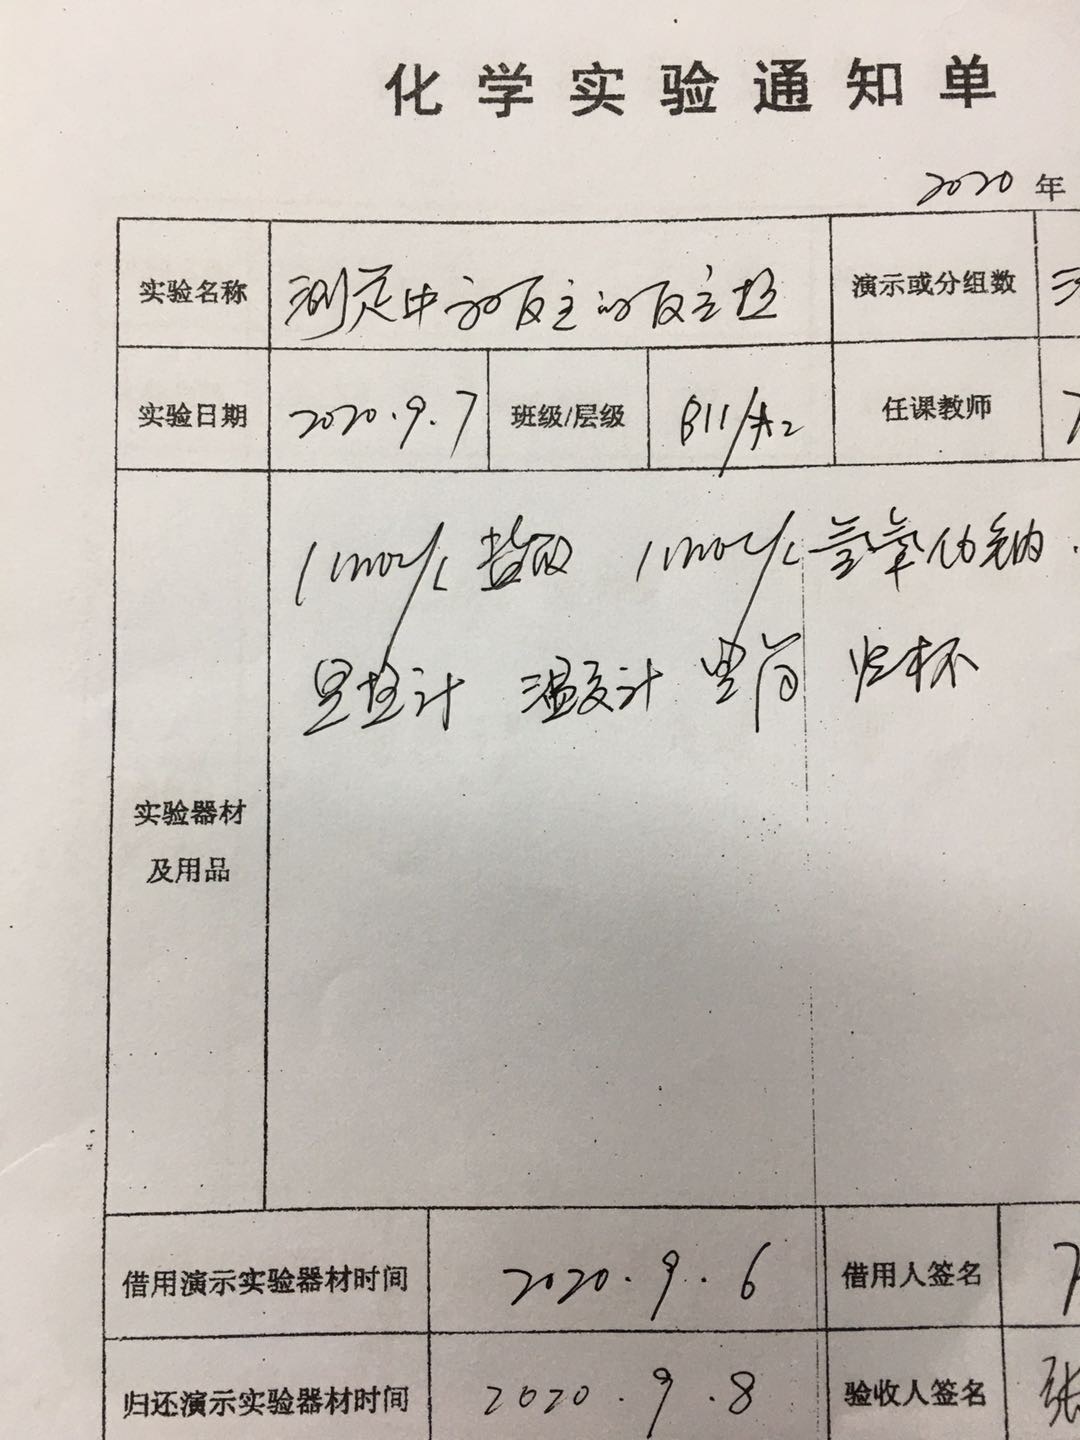 化学实验通知单
2020 年
实验名称 测定中和反应的反应热 演示或分组数
实验日期 2020.9.7 班级/层级 B11/A2 任课教师
1mol/L 盐酸 1mol/L 氢氧化钠
量热计 温度计 量筒 烧杯
实验器材
及用品
借用演示实验器材时间 2020.9.6 借用人签名
归还演示实验器材时间 2020.9.8 验收人签名 张